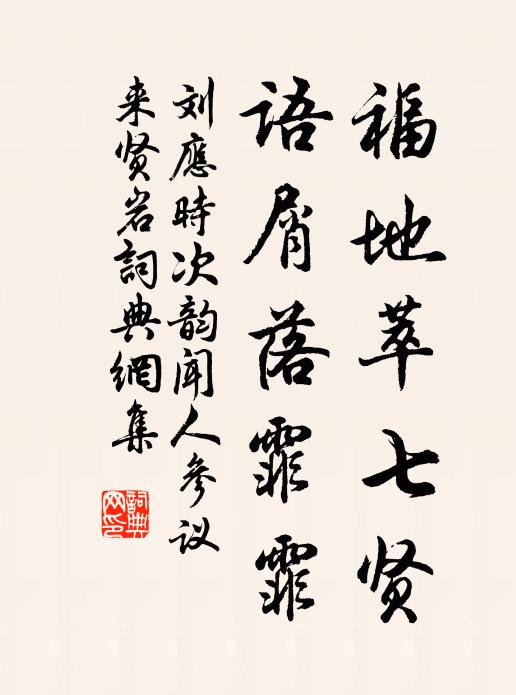 福地萃七贤
语屑落霏霏
刘應時次韵闻人参议
来贤岩詞典網集
詞典网印